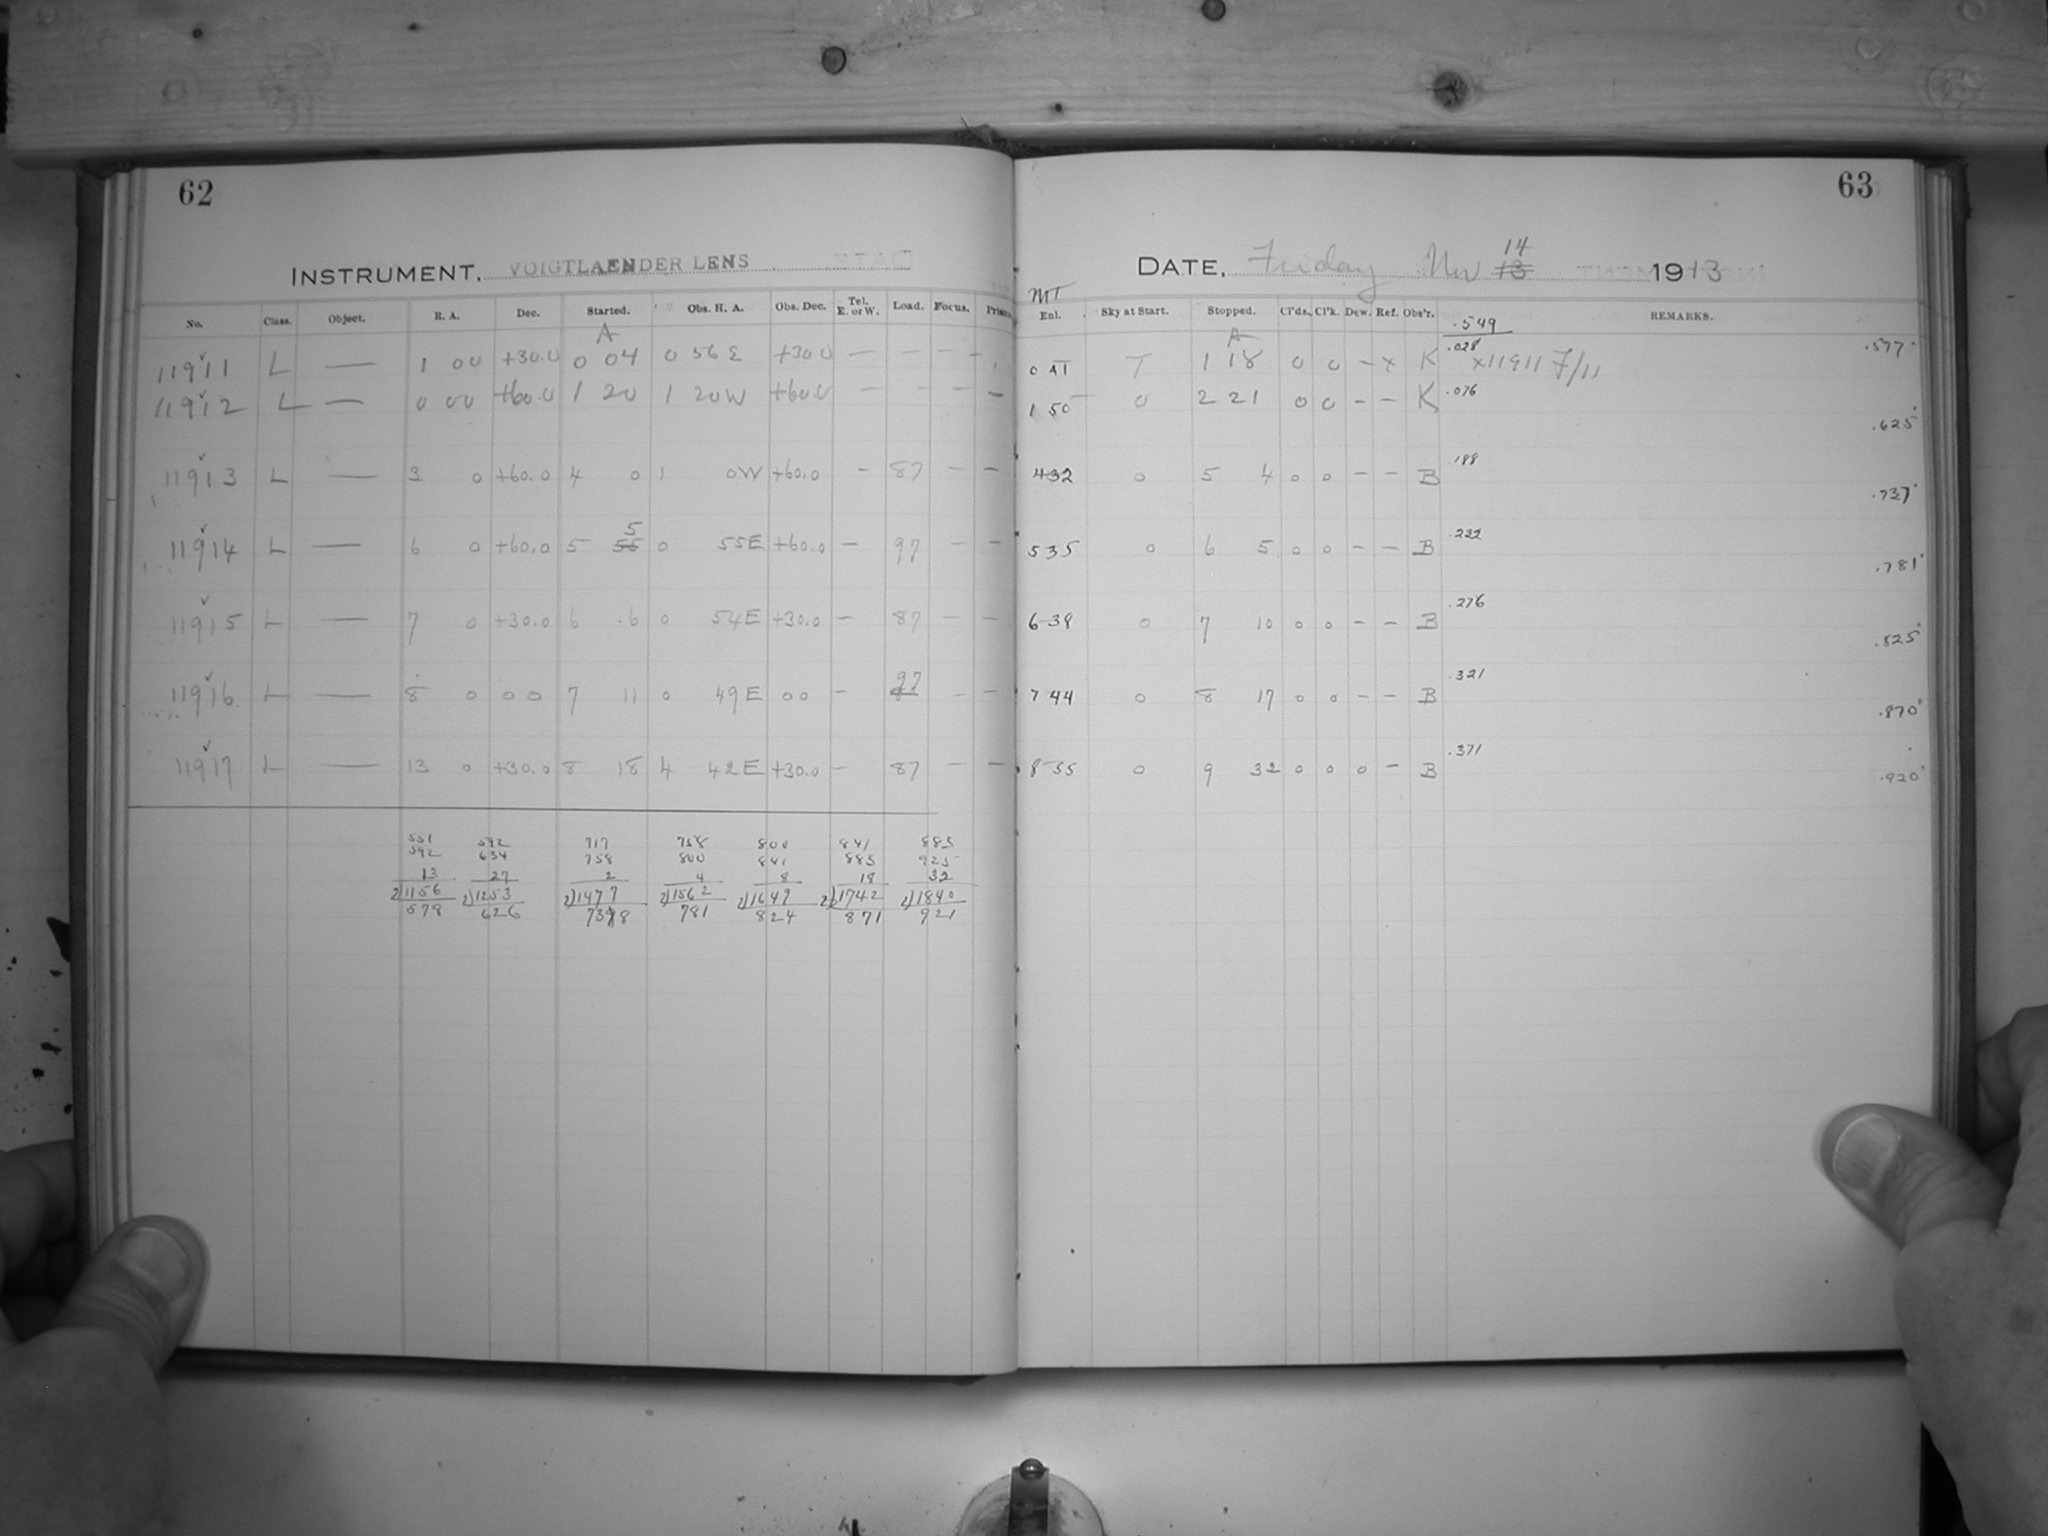 62
INSTRUMENT. VOIGTLAENDER LENS
No. Class. Object. R. A. Dec. Started. Obs. H. A. Obs. Dec. Tel. E. or W. Load. Focus.
A
11911 L — 1 00 +30.0 0 04 0 56 E +30 0 — — — —
11912 L — 0 00 +60.0 1 20 1 20 W +60.0 — — — —
11913 L — 3 0 +60.0 4 0 1 0W +60.0 - 87 — —
5
11914 L — 6 0 +60.0 5 55 0 55E +60.0 — 97 — —
11915 L — 7 0 +30.0 6 6 0 54E +30.0 — 87 — —
97
11916 L — 8 0 0 0 7 11 0 49E 00 — — —
11917 L — 13 0 +30.0 8 18 4 42E +30.0 — 87 — —
551 592 717 758 800 841 883
592 634 758 800 841 883 925
13 27 2 4 8 18 32
2)1156 2)1253 2)1477 2)1562 2)1649 2)1742 2)1840
578 626 738 781 824 871 921
63
14
DATE, Friday Nov 13 1913
MT
Enl. Sky at Start. Stopped. Cl'ds. Cl'k. Dew. Ref. Obs'r. REMARKS.
.549
A
0 41 T 1 18 0 0 — x K .028 x11911 F/11 .577
1 50 0 2 21 0 0 - - K .076 .625
432 0 5 4 0 0 - - B .188 .737
535 0 6 5 0 0 - - B .232 .781
638 0 7 10 0 0 - - B .276 .825
744 0 8 17 0 0 - - B .321 .870
855 0 9 32 0 0 0 - B .371 .920